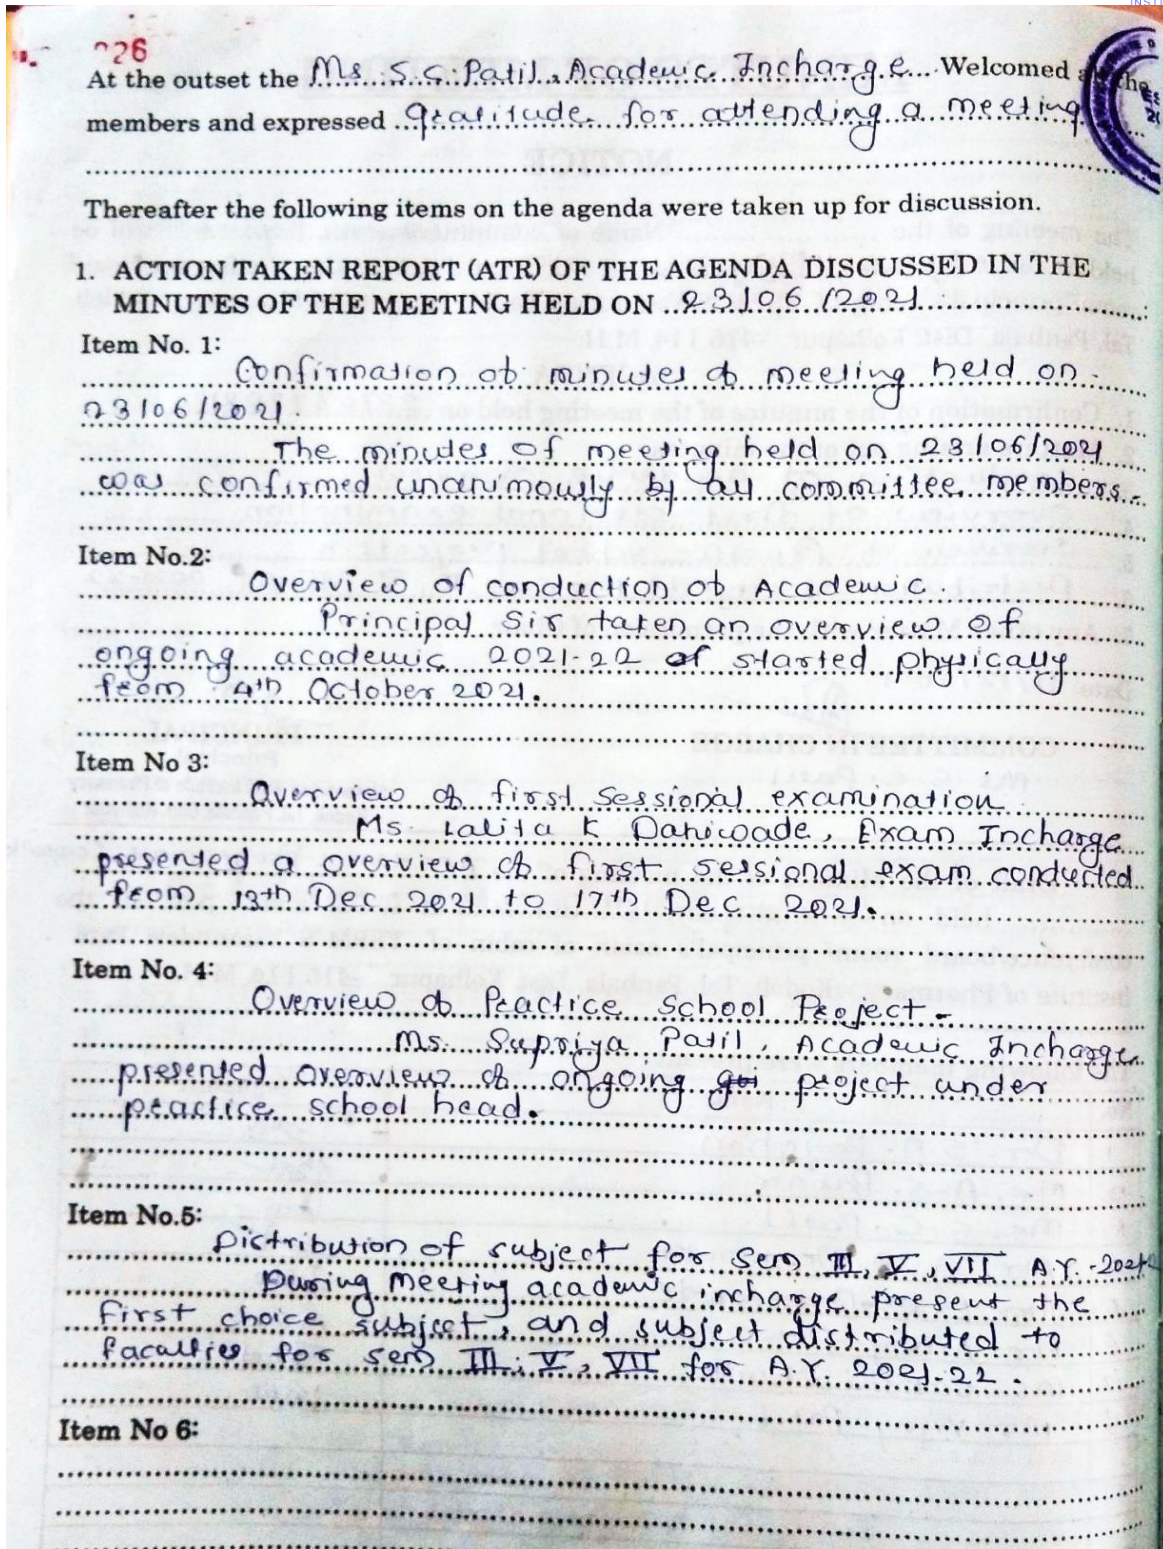 INSTI
226
At the outset the Ms. S. S. Patil, Academic Incharge Welcomed all the
members and expressed gratitude for attending a meeting
Thereafter the following items on the agenda were taken up for discussion.
1. ACTION TAKEN REPORT (ATR) OF THE AGENDA DISCUSSED IN THE
MINUTES OF THE MEETING HELD ON 23/06/2021
Item No. 1:
Confirmation of minutes of meeting held on
23/06/2021
The minutes of meeting held on 23/06/2021
was confirmed unanimously by all committee members.
Item No.2:
Overview of conduction of Academic.
Principal Sir taken an overview of
ongoing academic 2021-22 of started physically
from 4th October 2021.
Item No 3:
Overview of first sessional examination
Ms. Lalita K Dahiwade, Exam Incharge
presented a overview of first sessional exam conducted
from 13th Dec 2021 to 17th Dec 2021.
Item No. 4:
Overview of Practice School Project -
Ms. Supriya Patil, Academic Incharge
presented overview of ongoing project under
practice school head.
Item No.5:
Distribution of subject for sem III, V, VII A.Y.-2021-2
During meeting academic incharge present the
first choice subject, and subject distributed to
faculties for sem III, V, VII for A.Y. 2021-22.
Item No 6: